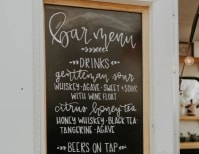 bar menu
DRINKS
gentleman sour
WHISKEY · AGAVE · SWEET + SOUR
WITH WINE FLOAT
citrus honey tea
HONEY WHISKEY · BLACK TEA ·
TANGERINE · AGAVE
BEERS ON TAP